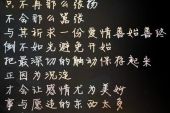 只不再那么张扬
不会那么嚣张
与其祈求一份爱情善始善终
倒不如光避免开始
把最深切的触动保存起来
正因为沉迷
才会让感情尤为美妙
事与愿违的东西太多